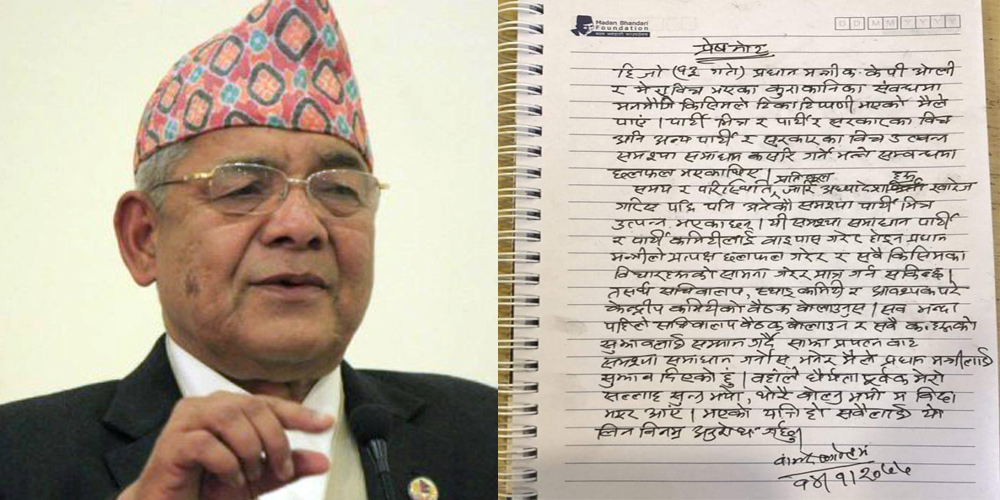 Madan Bhandari
Foundation
D D M M Y Y Y Y
प्रेस नोट
हिजो (१३ गते) प्रधान मन्त्री के.पी ओली
र मेरा विच भएका कुराकानिका संवन्धमा
मनोमानि किसिमले टिका टिप्पणी भएको मैले
पाएं । पार्टी भित्र र पार्टी र सरकारका विच
अनि अन्य पार्टी र सरकारका विच उत्पन्न
समश्या समाधान कसरि गर्ने भन्ने सम्वन्धमा
छलफल भएकाथिए । प्रतिकूल
समय र परिस्थिति, जारि अध्यादेश खारेज
गरिए पछि पनि अनेकौ समश्या पार्टी भित्र
उत्पन्न भएकाछन् । यी समश्या समाधान पार्टी
र पार्टी कमिटीलाई वाइपास गरेर होइन प्रधान
मन्त्रीले प्रत्यक्ष छलफल गरेर र सवै किसिमका
विचारहरूको सामना गरेर मात्र गर्न सकिन्छ ।
तसर्थ सचिवालय, स्थाइ कमिटी र आवश्यक परे
केन्द्रीय कमिटीको वैठक वोलाउनुस । सव भन्दा
पहिले सचिवालय वैठक वोलाउन र सवै क. हरूको
सुझावलाई सम्मान गर्दै साझा प्रयत्न वाट
समश्या समाधान गर्नोस भनेर मैले प्रधान मन्त्रीलाई
सुझाव दिएको हुं । वहांले धैर्यता पूर्वक मेरो
सल्लाह सुन्नु भयो, थोरै वोल्नु भयो म विदा
भएर आएं । भएको यत्ति हो सवैलाई
विन विनम्र अनुरोध गर्दछु
वामदेव गौतम
१४/१/२०७७